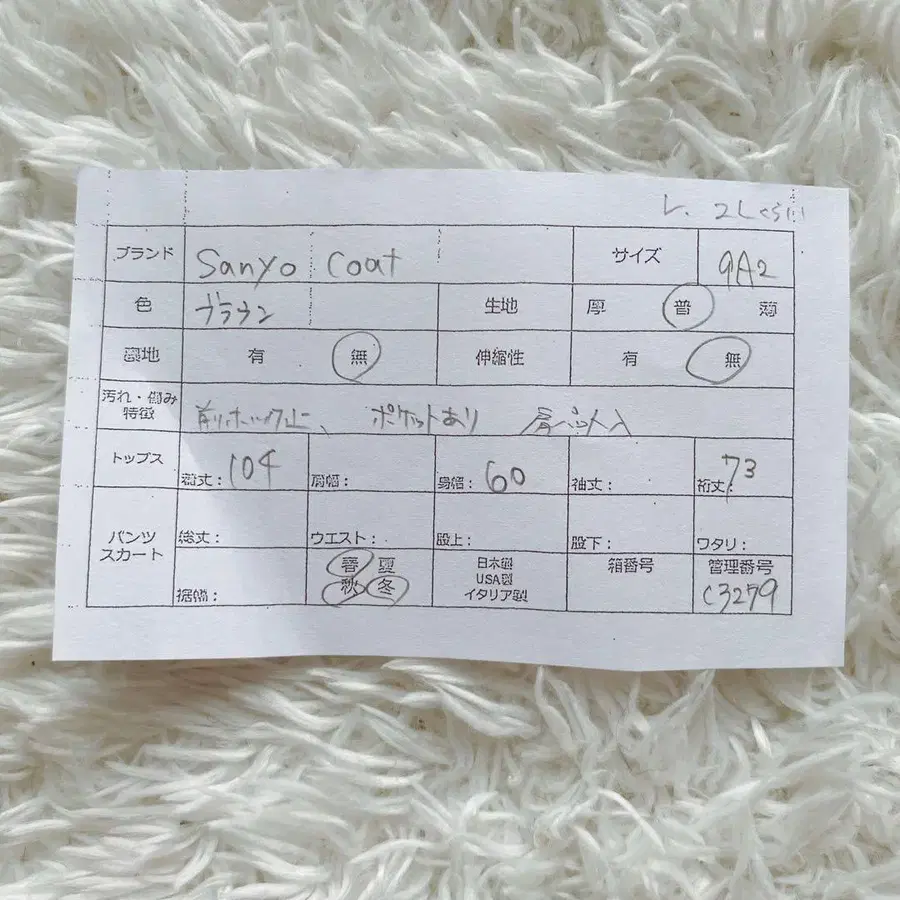 L. 2Lくらい
ブランド Sanyo Coat サイズ 9A2
色 ブラウン 生地 厚 普 薄
裏地 有 無 伸縮性 有 無
汚れ・傷み
特徴 前ホック止、 ポケットあり 肩芯入
トップス 着丈:104 肩幅: 身幅:60 袖丈: 裄丈:73
パンツ
スカート 総丈: ウエスト: 股上: 股下: ワタリ:
裾幅: 春 夏 秋 冬 日本製 USA製 イタリア製 箱番号 管理番号 C3279